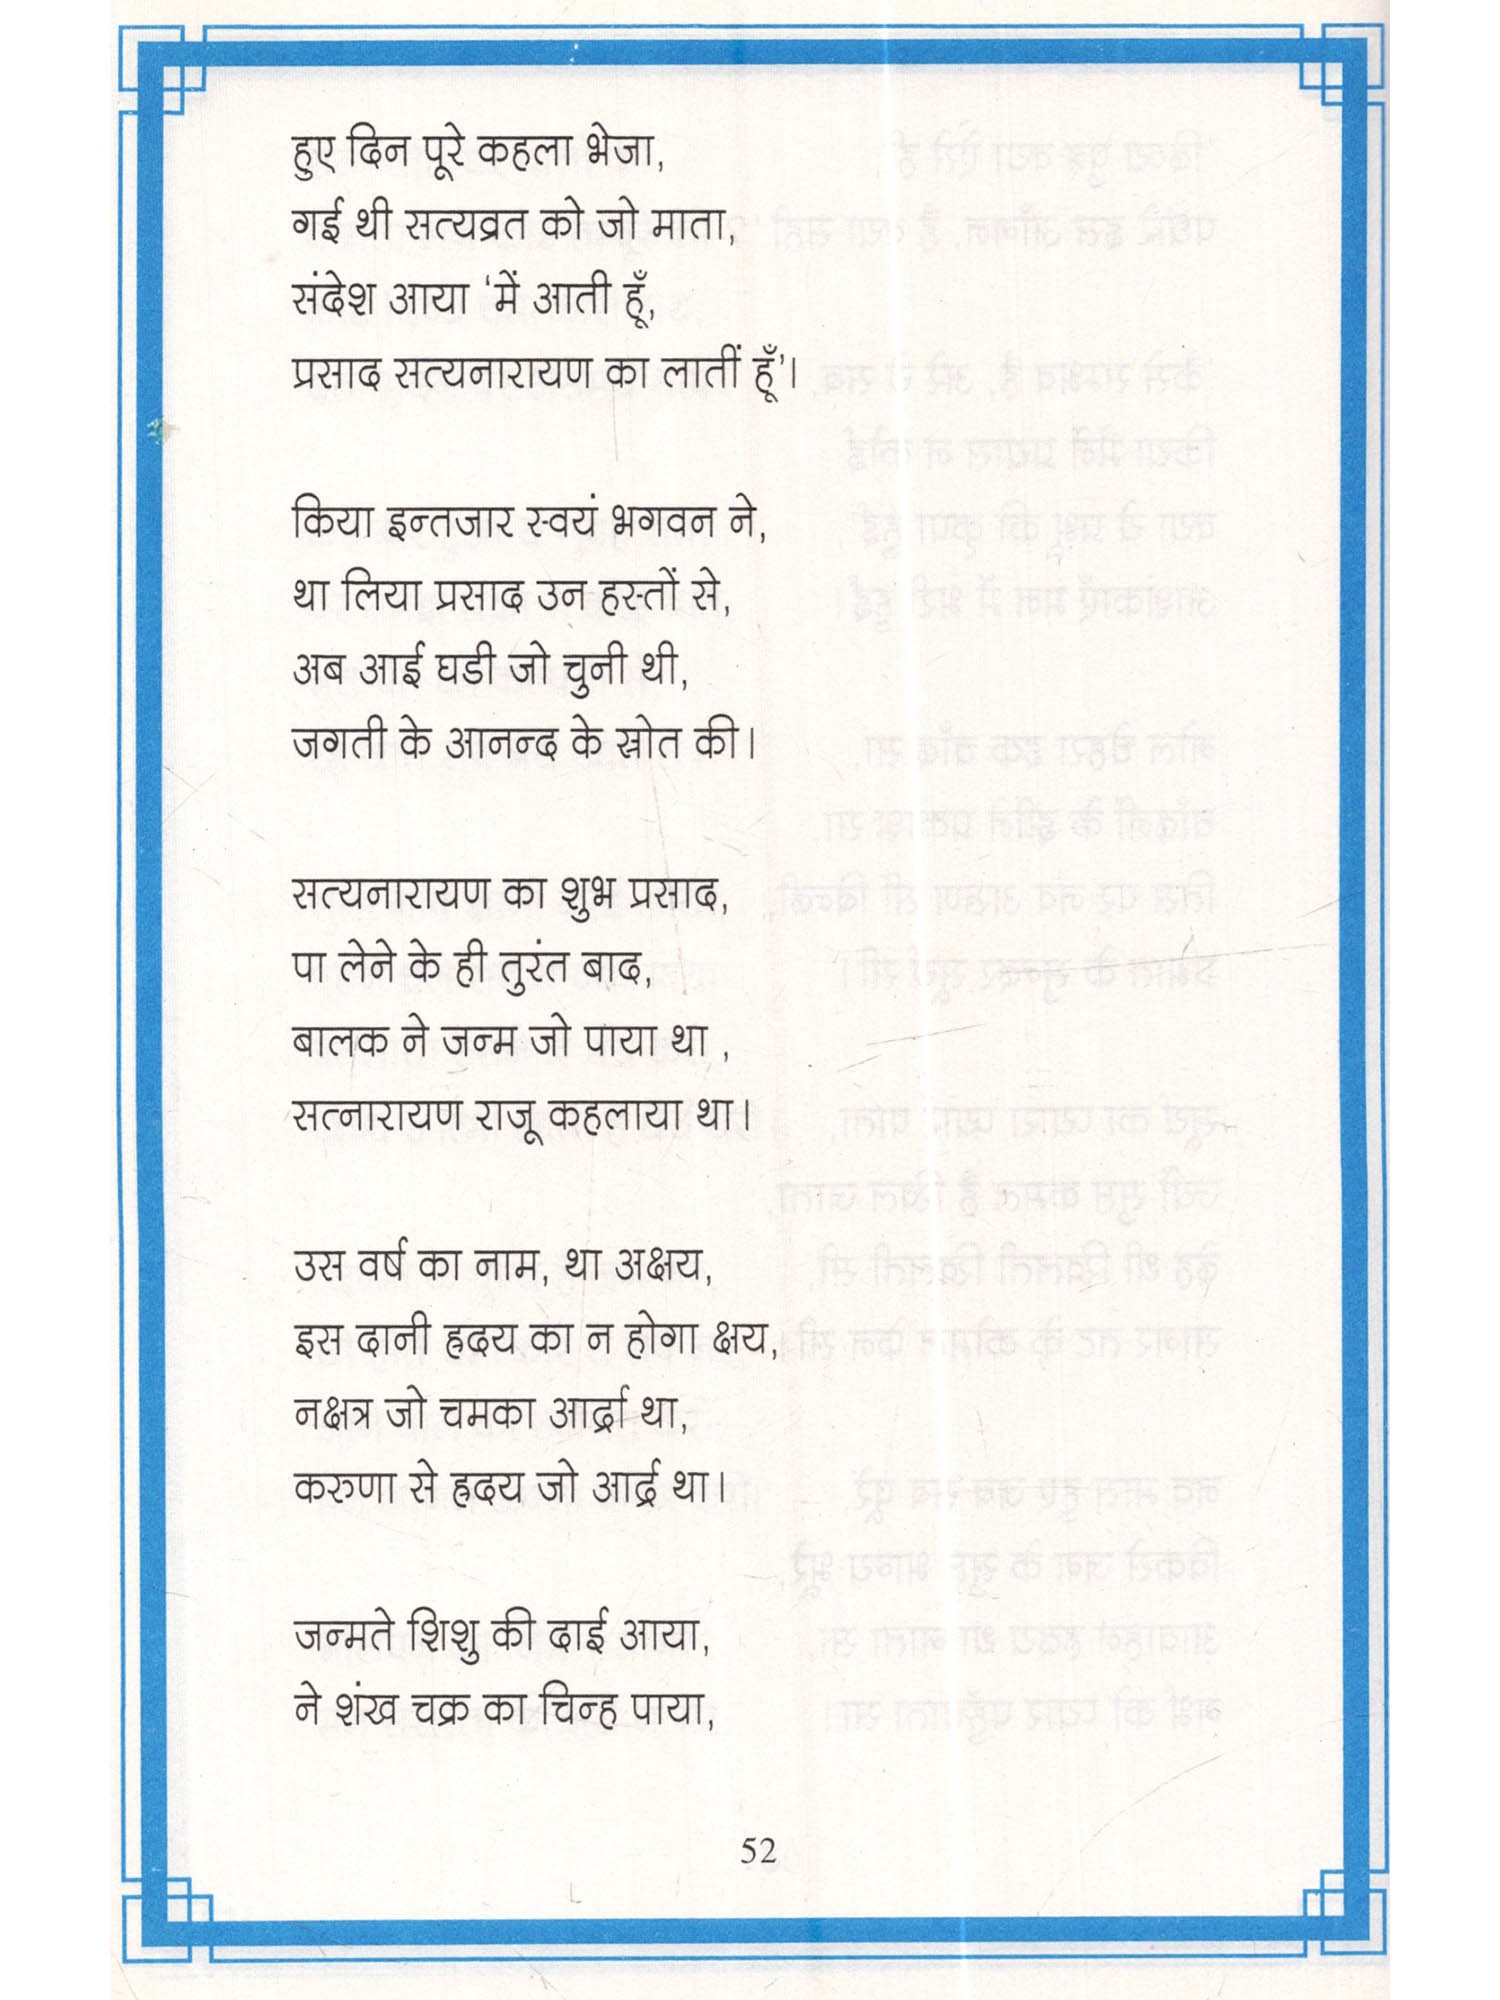 हुए दिन पूरे कहला भेजा,
गई थी सत्यव्रत को जो माता,
संदेश आया ‘में आती हूँ,
प्रसाद सत्यनारायण का लातीं हूँ’।
किया इन्तजार स्वयं भगवन ने,
था लिया प्रसाद उन हस्तों से,
अब आई घडी जो चुनी थी,
जगती के आनन्द के स्रोत की।
सत्यनारायण का शुभ प्रसाद,
पा लेने के ही तुरंत बाद,
बालक ने जन्म जो पाया था ,
सत्नारायण राजू कहलाया था।
उस वर्ष का नाम, था अक्षय,
इस दानी ह्रदय का न होगा क्षय,
नक्षत्र जो चमका आर्द्रा था,
करुणा से ह्रदय जो आर्द्र था।
जन्मते शिशु की दाई आया,
ने शंख चक्र का चिन्ह पाया,
52